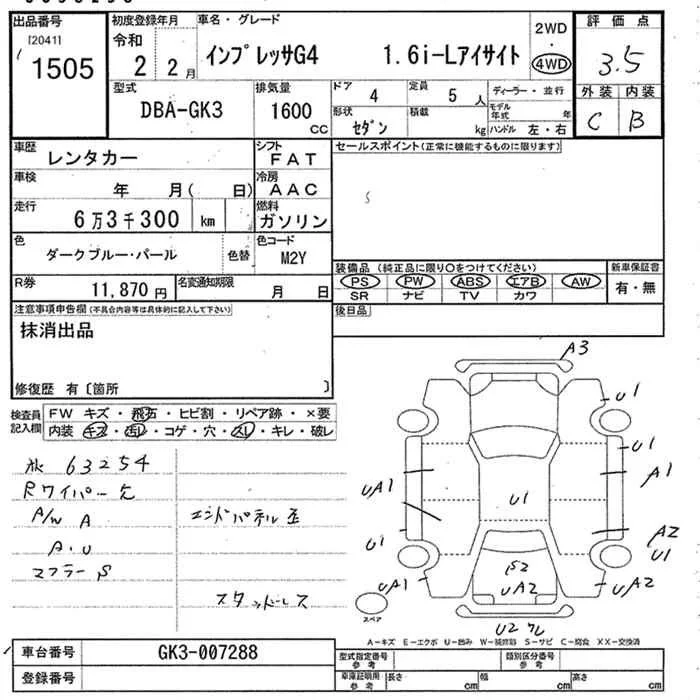 出品番号
[2041]
1505
初度登録年月
令和
2 2月
車名・グレード
インプレッサG4 1.6i-Lアイサイト
2WD
・
4WD
評価点
3.5
外装 内装
C B
型式
DBA-GK3
排気量
1600
cc
ドア
4
定員
5 人
形状
セダン
積載
kg
ディーラー・並行
モデル年式 年
ハンドル 左・右
車歴
レンタカー
シフト
FAT
車検
年 月( 日)
冷房
AAC
走行
6万3千300 km
燃料
ガソリン
色
ダークブルー・パール
色替
色コード
M2Y
R券
11,870円
名変通知期限
月 日
セールスポイント(正常に機能するものに限ります)
装備品(純正品に限り○をつけてください)
PS PW ABS エアB AW
SR ナビ TV カワ
新車保証書
有・無
後日品
注意事項申告欄(不具合内容等は具体的に記入して下さい)
抹消出品
修復歴 有〔箇所 〕
検査員記入欄
FW キズ・飛石・ヒビ割・リペア跡・×要
内装 キズ・汚レ・コゲ・穴・スレ・キレ・破レ
63254
Rワイパー欠
A/W A
A.U
マフラー S
エンドパネル歪
スタッドレス
A3
U1
U1
A1
A2
U1
UA2
UA1
U1
UA1
U1
S2
UA2
U2
スペア
A-キズ E-エクボ U-凹み W-補修跡 S-サビ C-腐食 XX-交換済
車台番号
GK3-007288
登録番号
型式指定番号
参考
類別区分番号
参考
車庫証明用
参考
長さ cm
幅 cm
高さ cm